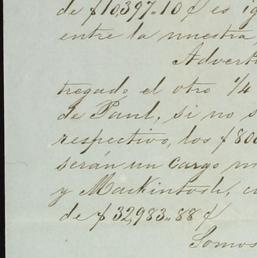 de $10,397.10 ¢ es ig
entre la nuestra
Advert
tregado el otro 1/4
de Paul, si no s
respectivo, los $80
serán un cargo m
y Mackintosh, c
de $32,983.88 ¢
Somos